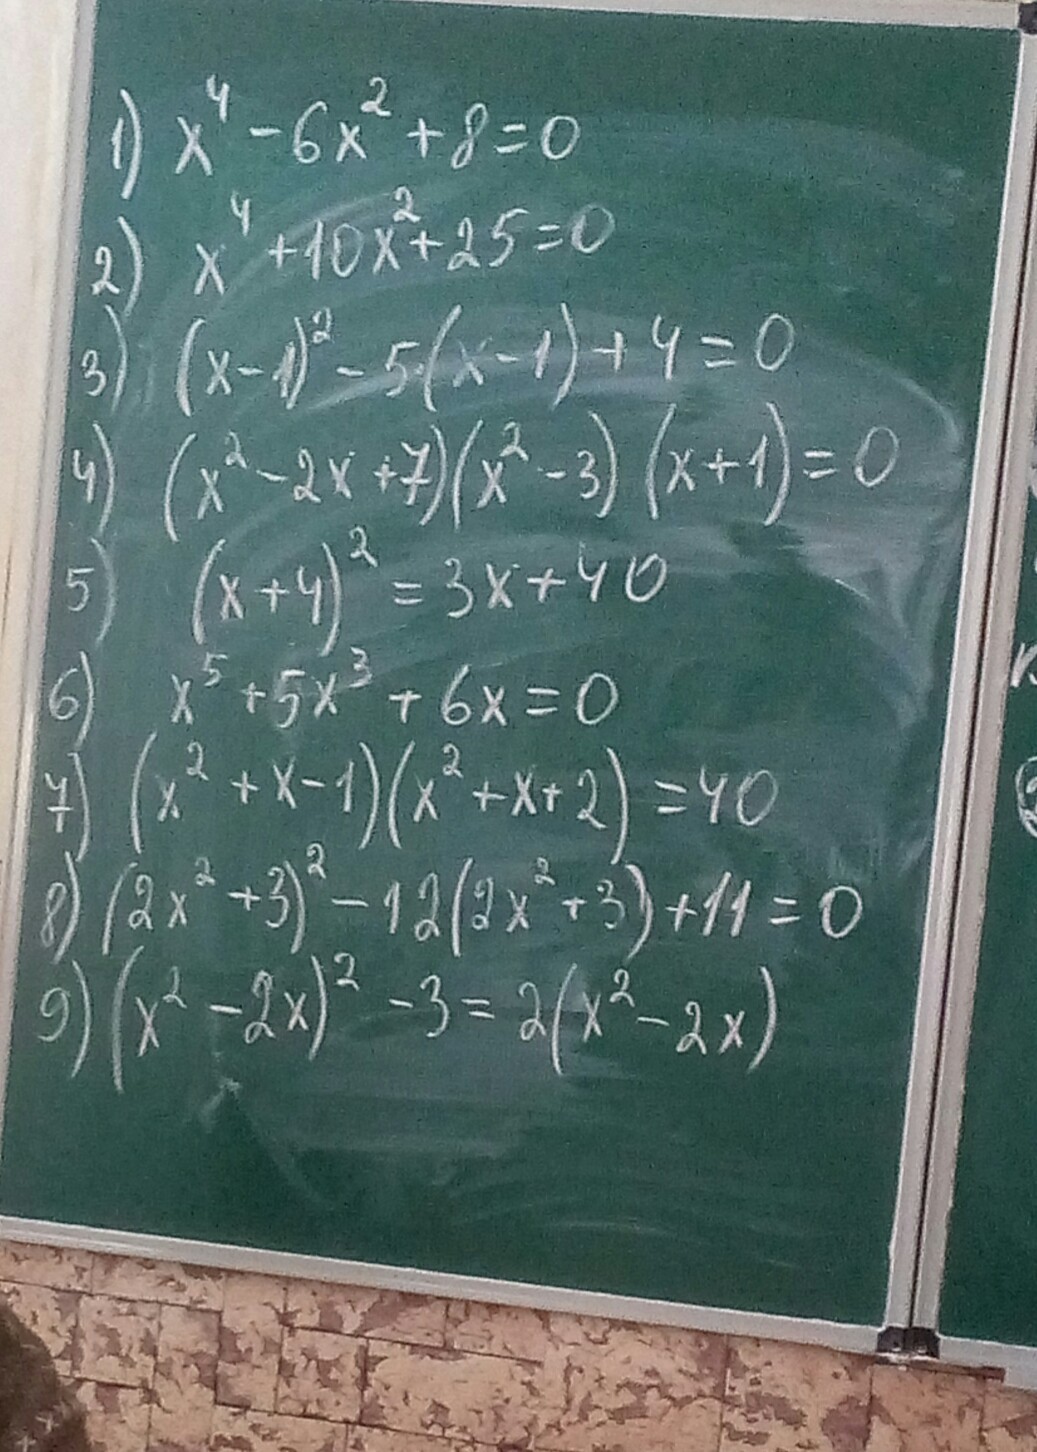 1) x⁴ - 6x² + 8 = 0
2) x⁴ + 10x² + 25 = 0
3) (x-1)² - 5·(x-1) + 4 = 0
4) (x² - 2x + 7)(x² - 3)(x+1) = 0
5) (x+4)² = 3x + 40
6) x⁵ + 5x³ + 6x = 0
7) (x² + x - 1)(x² + x + 2) = 40
8) (2x² + 3)² - 12(2x² + 3) + 11 = 0
9) (x² - 2x)² - 3 = 2(x² - 2x)